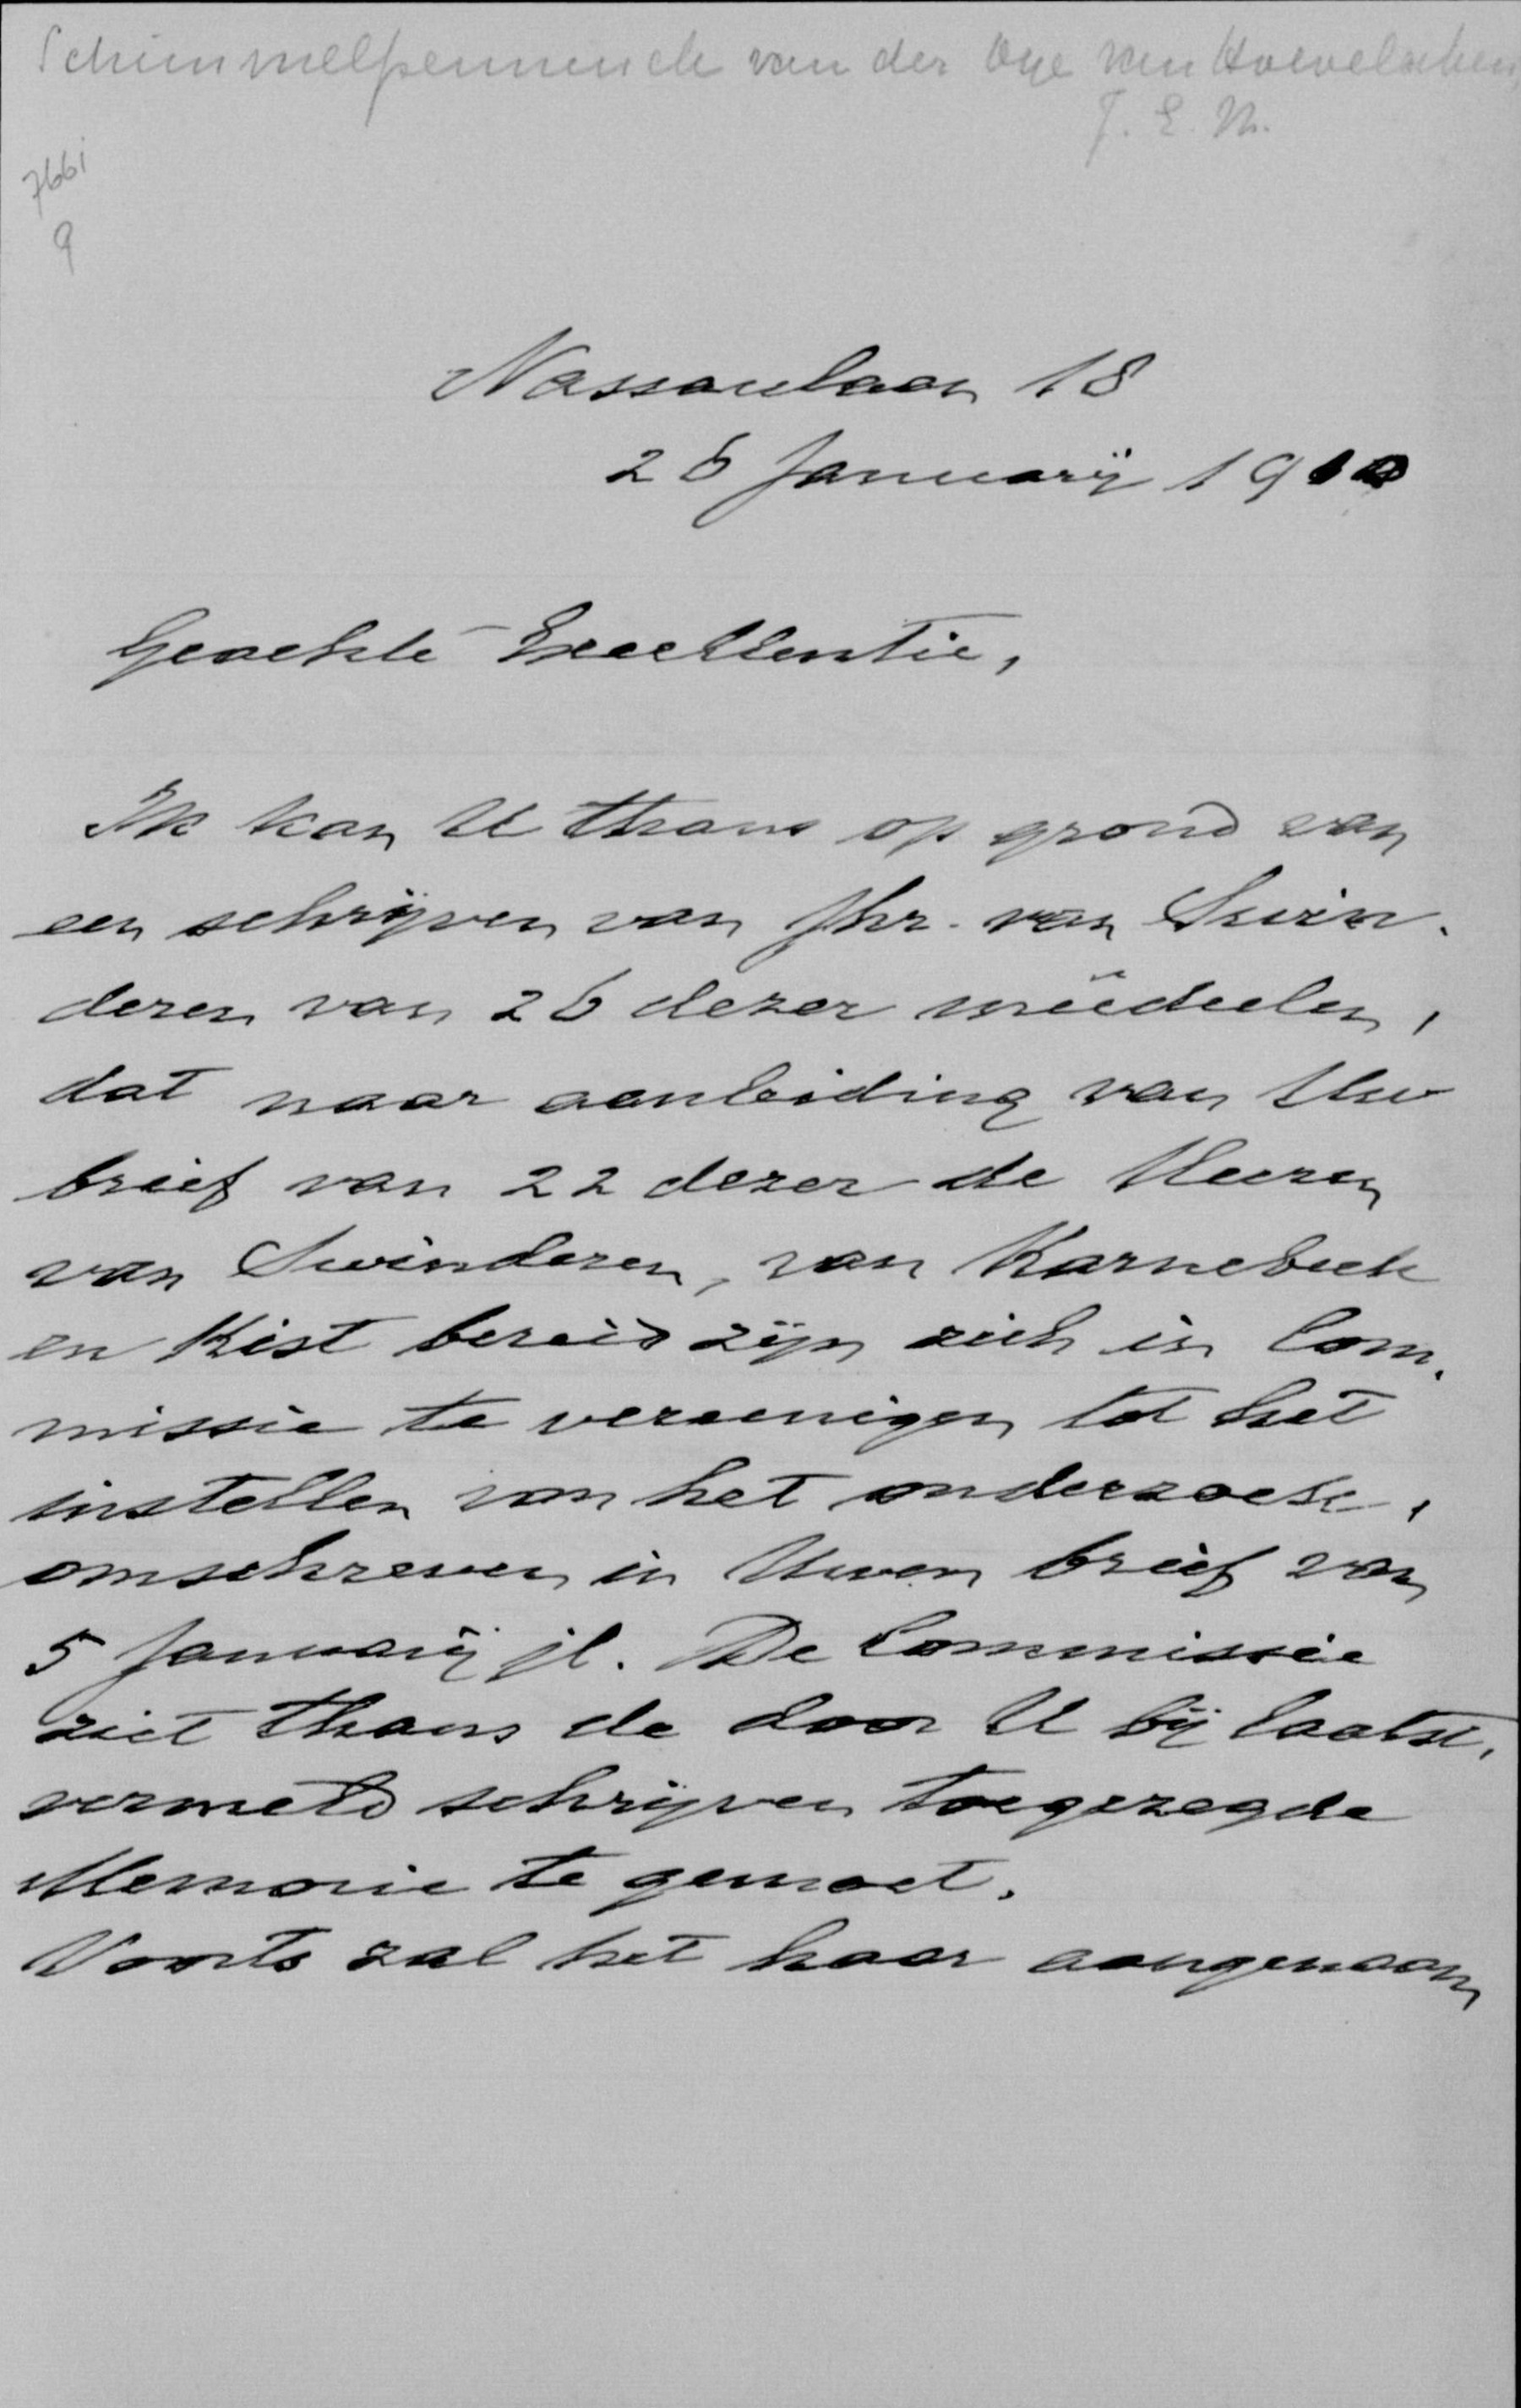 Schimmelpenninck van der Oye van Hoevelaken,
J. E. N.
7661
9
Nassaulaan 18
26 Januarij 1910
Geachte Excellentie,
Ik kan U thans op grond van
een schrijven van Jhr. van Swin-
deren van 26 dezer meêdeelen,
dat naar aanleiding van Uw
brief van 22 dezer de Heeren
van Swinderen, van Karnebeek
en Kist bereid zijn zich in Com-
missie te vereenigen tot het
instellen van het onderzoek,
omschreven in Uwen brief van
5 Januarij jl. De Commissie
ziet thans de door U bij laatst-
vermeld schrijven toegezegde
Memorie te gemoet.
Voorts zal het haar aangenaam